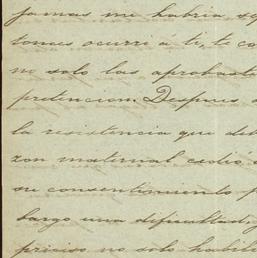 jamas me habria se
tonces ocurri á ti, te co
no solo las aprobast
pretencion. Despues d
la resistencia que deb
zon maternal cedió a
su consentimiento p
bargo una dificultad, y
preciso no solo habil